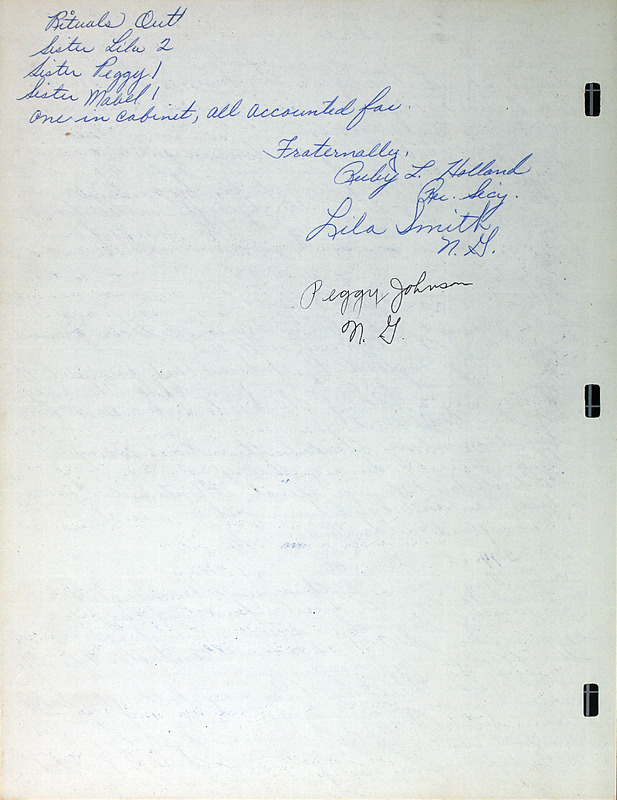 Rituals Out
Sister Lila 2
Sister Peggy 1
Sister Mabel 1
One in Cabinet, all accounted for.
Fraternally,
Ruby L. Holland
Rec. Secy.
Lila Smith
N. G.
Peggy Johnson
N. G.